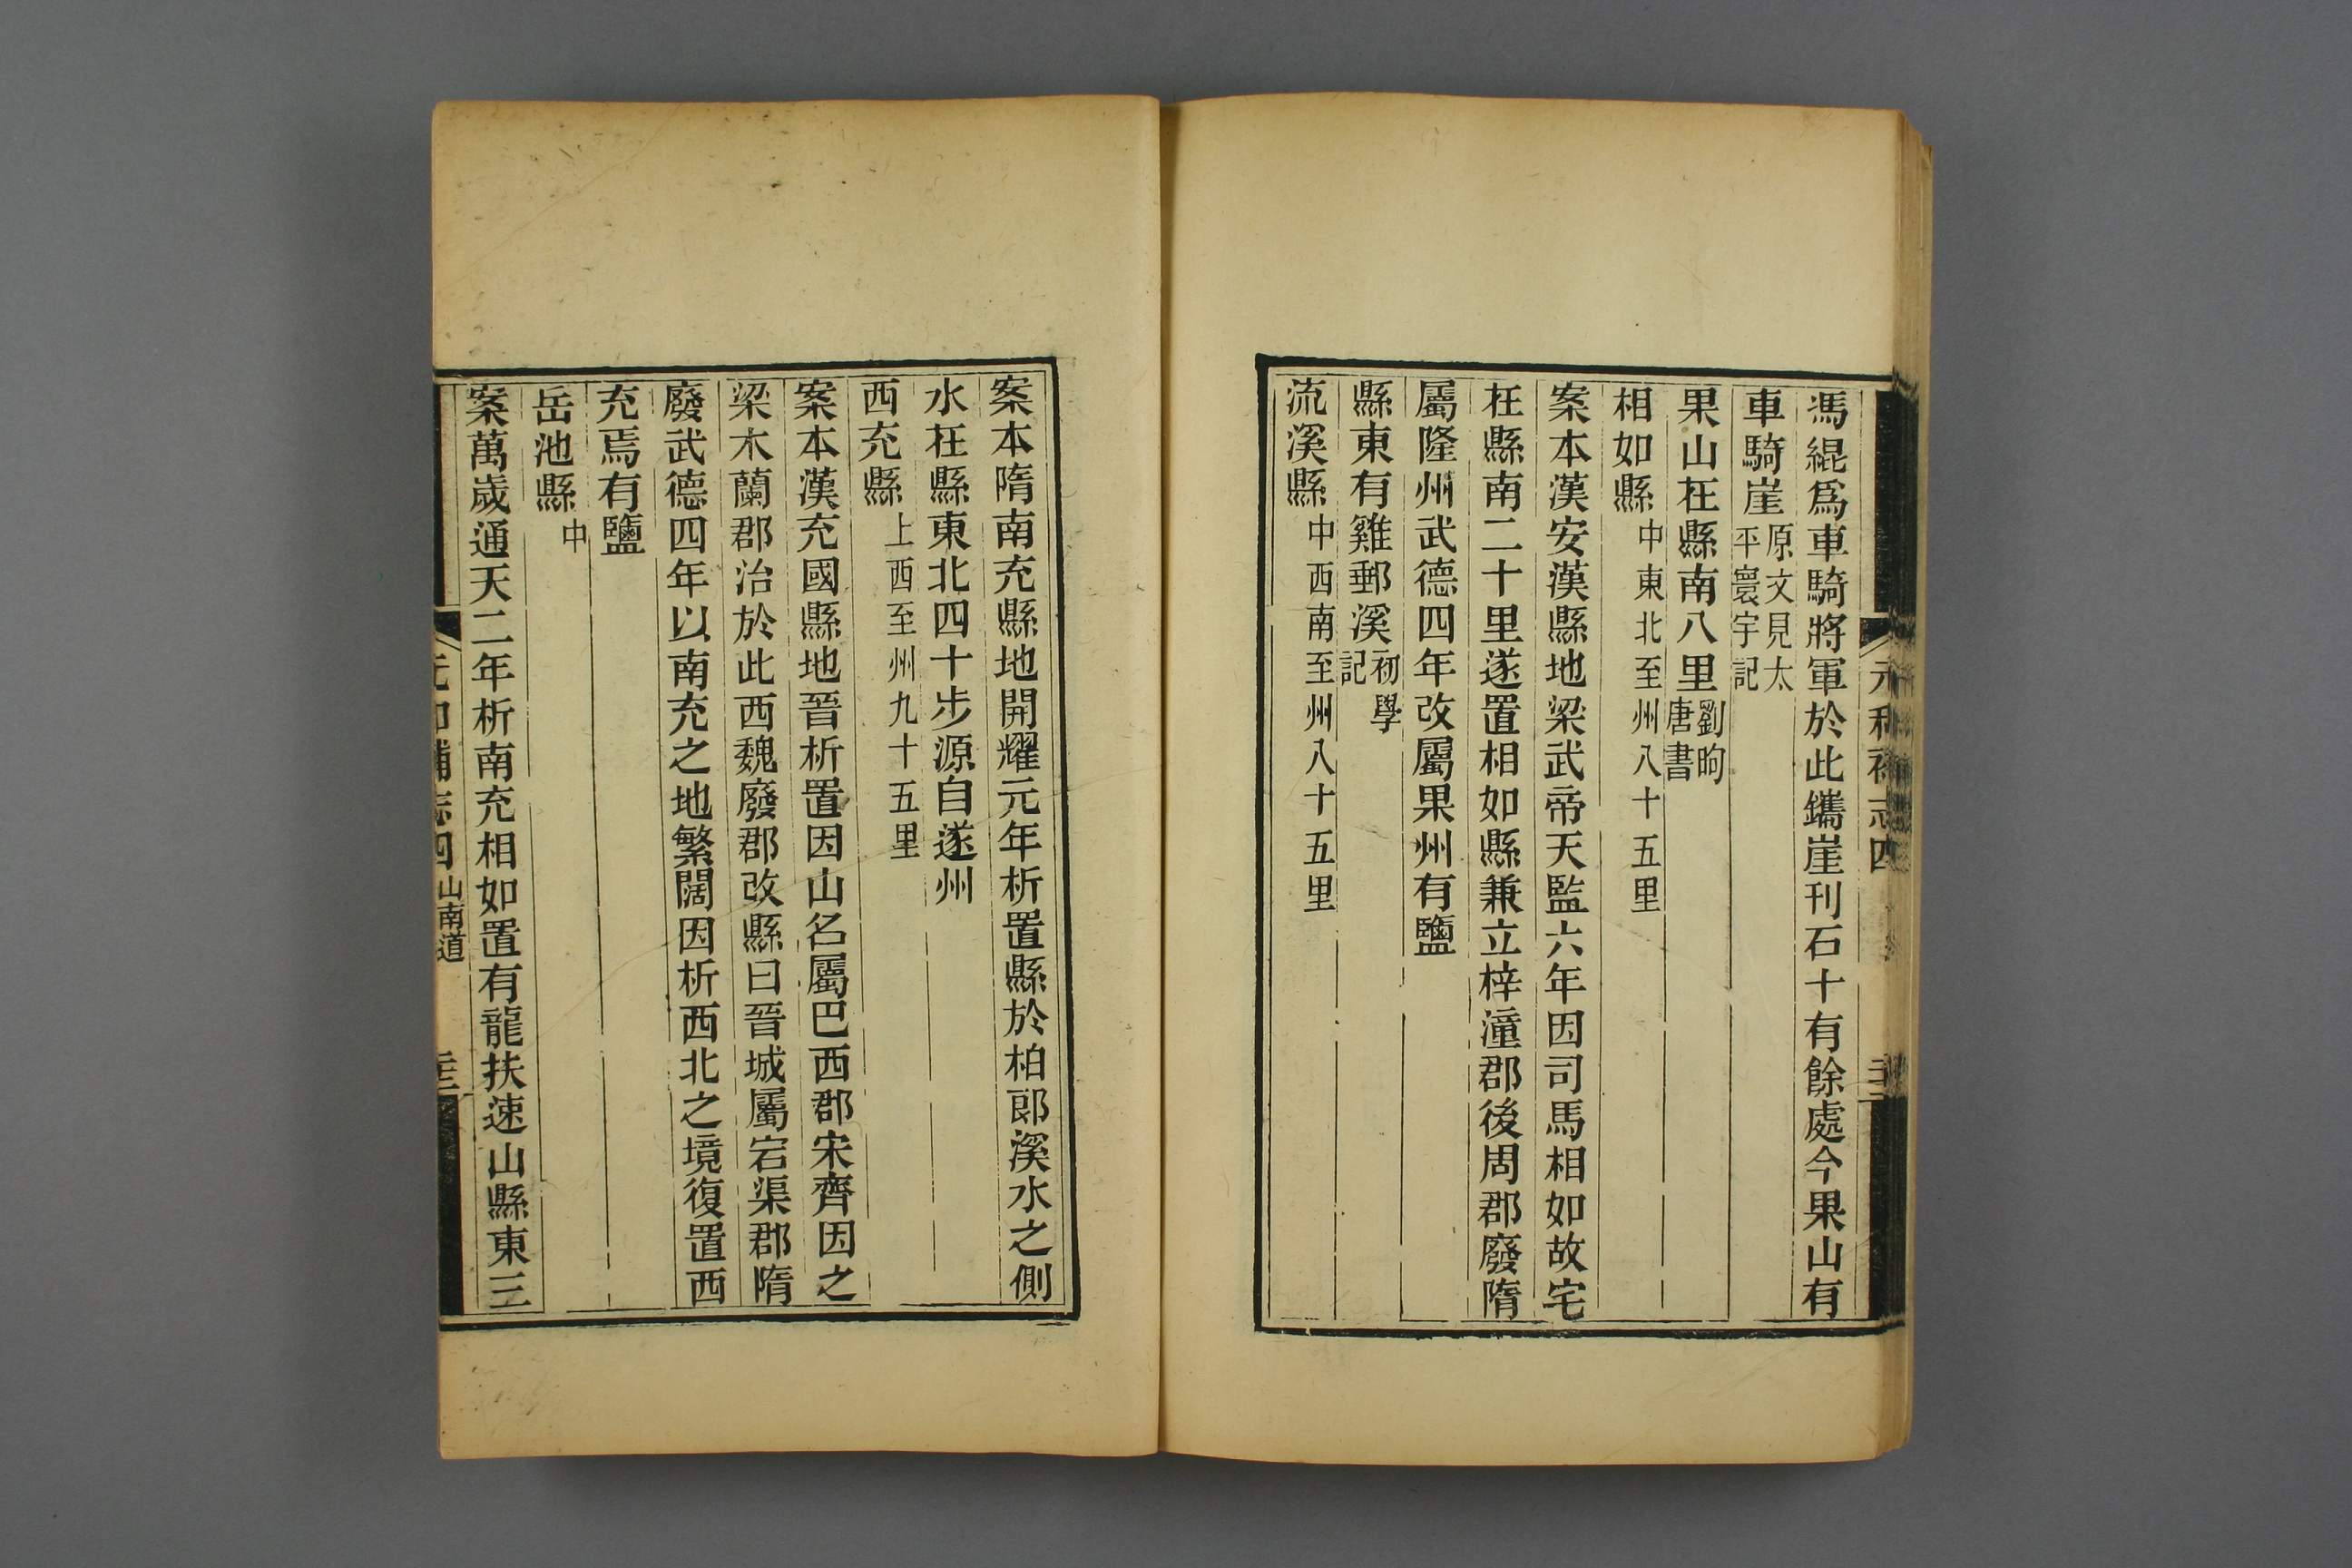 馮緄爲車騎將軍於此鐫崖刊石十有餘處今果山有
車騎崖原文見太平寰宇記
果山在縣南八里劉昫唐書
相如縣中東北至州八十五里
案本漢安漢縣地梁武帝天監六年因司馬相如故宅
在縣南二十里遂置相如縣兼立梓潼郡後周郡廢隋
屬隆州武德四年改屬果州有鹽
縣東有雞郵溪初學記
流溪縣中西南至州八十五里
案本隋南充縣地開耀元年析置縣於柏郎溪水之側
水在縣東北四十步源自遂州
西充縣上西至州九十五里
案本漢充國縣地晉析置因山名屬巴西郡宋齊因之
梁木蘭郡治於此西魏廢郡改縣曰晉城屬宕渠郡隋
廢武德四年以南充之地繁闊因析西北之境復置西
充焉有鹽
岳池縣中
案萬歲通天二年析南充相如置有龍扶速山縣東三
元和補志四 山南道